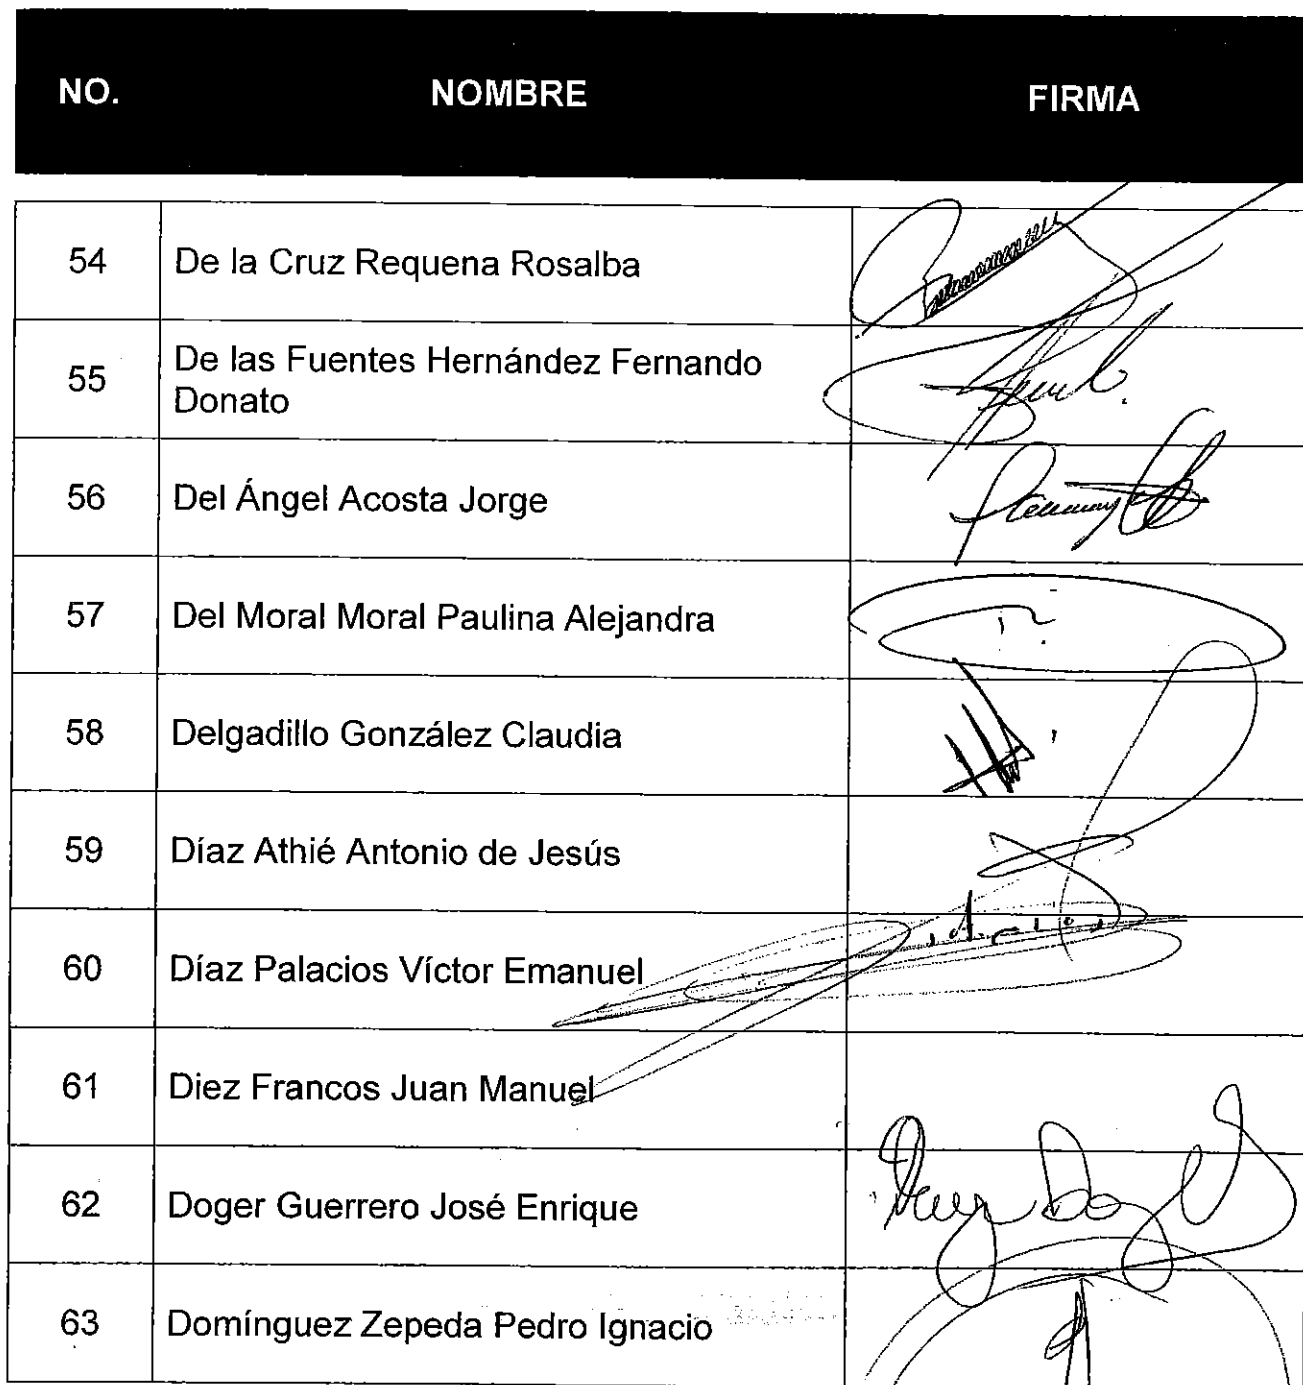 NO. NOMBRE FIRMA
54 De la Cruz Requena Rosalba
55 De las Fuentes Hernández Fernando
Donato
56 Del Ángel Acosta Jorge
57 Del Moral Moral Paulina Alejandra
58 Delgadillo González Claudia
59 Díaz Athié Antonio de Jesús
60 Díaz Palacios Víctor Emanuel
61 Diez Francos Juan Manuel
62 Doger Guerrero José Enrique
63 Domínguez Zepeda Pedro Ignacio